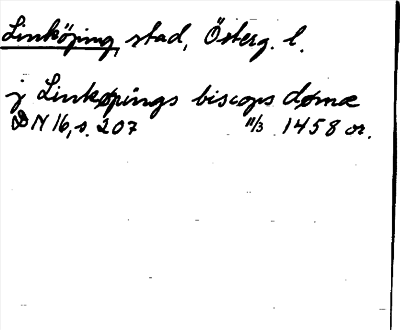 Linköping, stad, Österg. l.
j Linkøpings biscops dømæ
N 16, s. 207 11/3 1458 or.